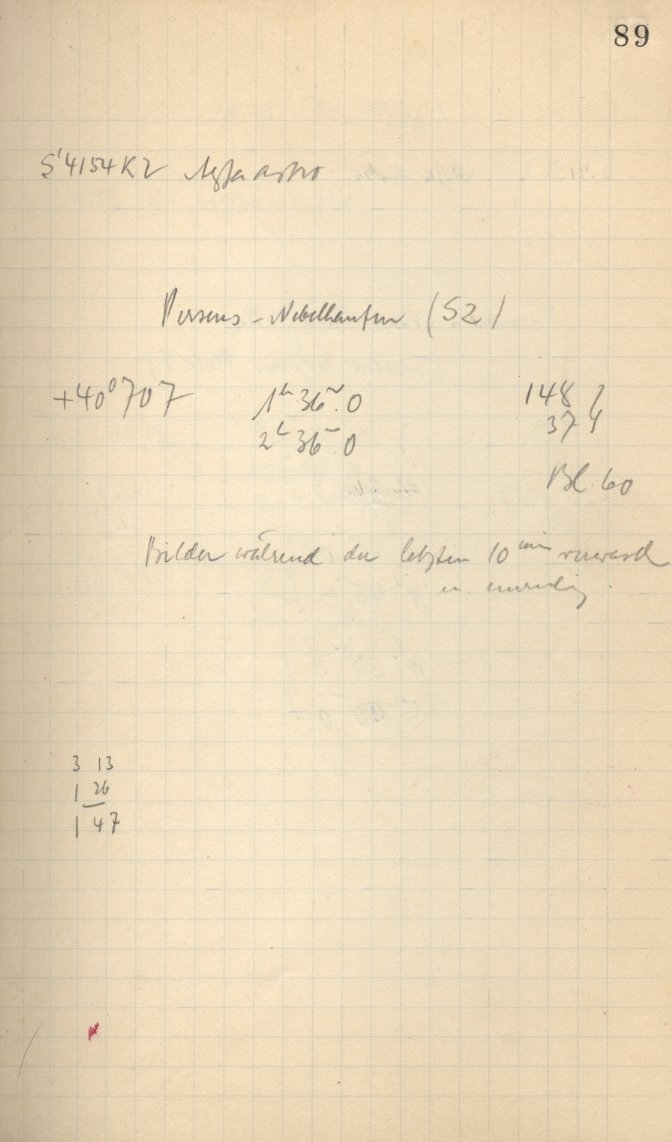 89
S'4154K2 Agfa astro
Perseus-Nebelhaufen (S2)
+40°707 1h 36m.0 148
2h 36m.0 37
Bl. 60
Bilder während der letzten 10 min verwasch
u. unruhig
3 13
1 26
1 47